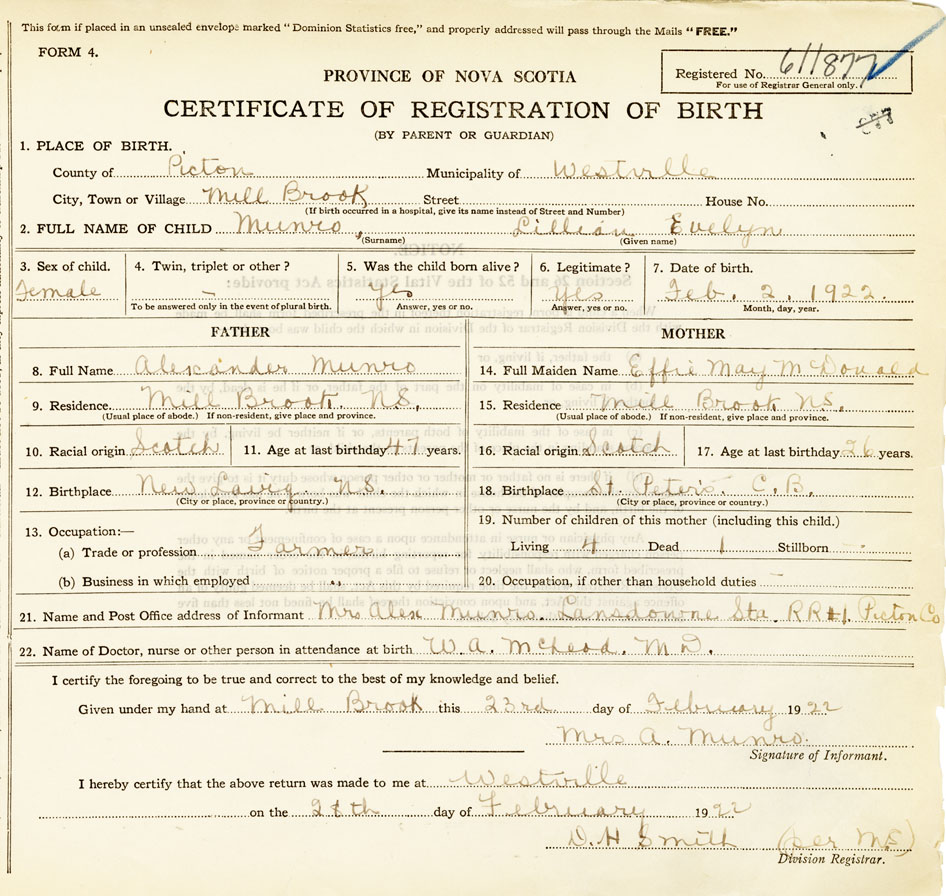 This form if placed in an unsealed envelope marked "Dominion Statistics free," and properly addressed will pass through the Mails "FREE."
FORM 4.
Registered No. 611877
For use of Registrar General only.
PROVINCE OF NOVA SCOTIA
CERTIFICATE OF REGISTRATION OF BIRTH
(BY PARENT OR GUARDIAN)
1. PLACE OF BIRTH.
County of Picton Municipality of Westville
City, Town or Village Mill Brook Street House No.
(If birth occurred in a hospital, give its name instead of Street and Number)
2. FULL NAME OF CHILD Munro, Lillian Evelyn
(Surname) (Given name)
3. Sex of child. 4. Twin, triplet or other? 5. Was the child born alive? 6. Legitimate? 7. Date of birth.
Female – yes yes Feb. 2, 1922.
To be answered only in the event of plural birth. Answer, yes or no. Answer, yes or no. Month, day, year.
FATHER MOTHER
8. Full Name Alexander Munro 14. Full Maiden Name Effie May McDonald
9. Residence. Mill Brook N.S. 15. Residence Mill Brook N.S.
(Usual place of abode.) If non-resident, give place and province. (Usual place of abode.) If non-resident, give place and province.
10. Racial origin Scotch 11. Age at last birthday 47 years. 16. Racial origin Scotch 17. Age at last birthday 26 years.
12. Birthplace New Lairg. N.S. 18. Birthplace St. Peter's C.B.
(City or place, province or country.) (City or place, province or country.)
13. Occupation:— 19. Number of children of this mother (including this child.)
(a) Trade or profession Farmer Living 4 Dead 1 Stillborn –
(b) Business in which employed " 20. Occupation, if other than household duties –
21. Name and Post Office address of Informant Mrs Alex Munro. Lansdowne Sta. RR#1. Picton Co
22. Name of Doctor, nurse or other person in attendance at birth W. A. McLeod. M D.
I certify the foregoing to be true and correct to the best of my knowledge and belief.
Given under my hand at Mill Brook this 23rd day of February 1922
Mrs A. Munro.
Signature of Informant.
I hereby certify that the above return was made to me at Westville
on the 28th day of February 1922
D. H Smith (per M S)
Division Registrar.